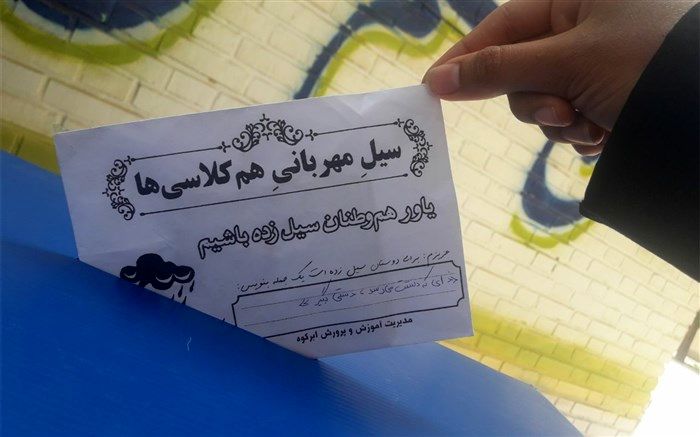 سیلِ مهربانیِ هم کلاسی ها
یاور هم‌وطنان سیل زده باشیم
عزیزم: برای دوستان سیل زده ات یک جمله بنویس:
مدیریت آموزش و پرورش ابرکوه